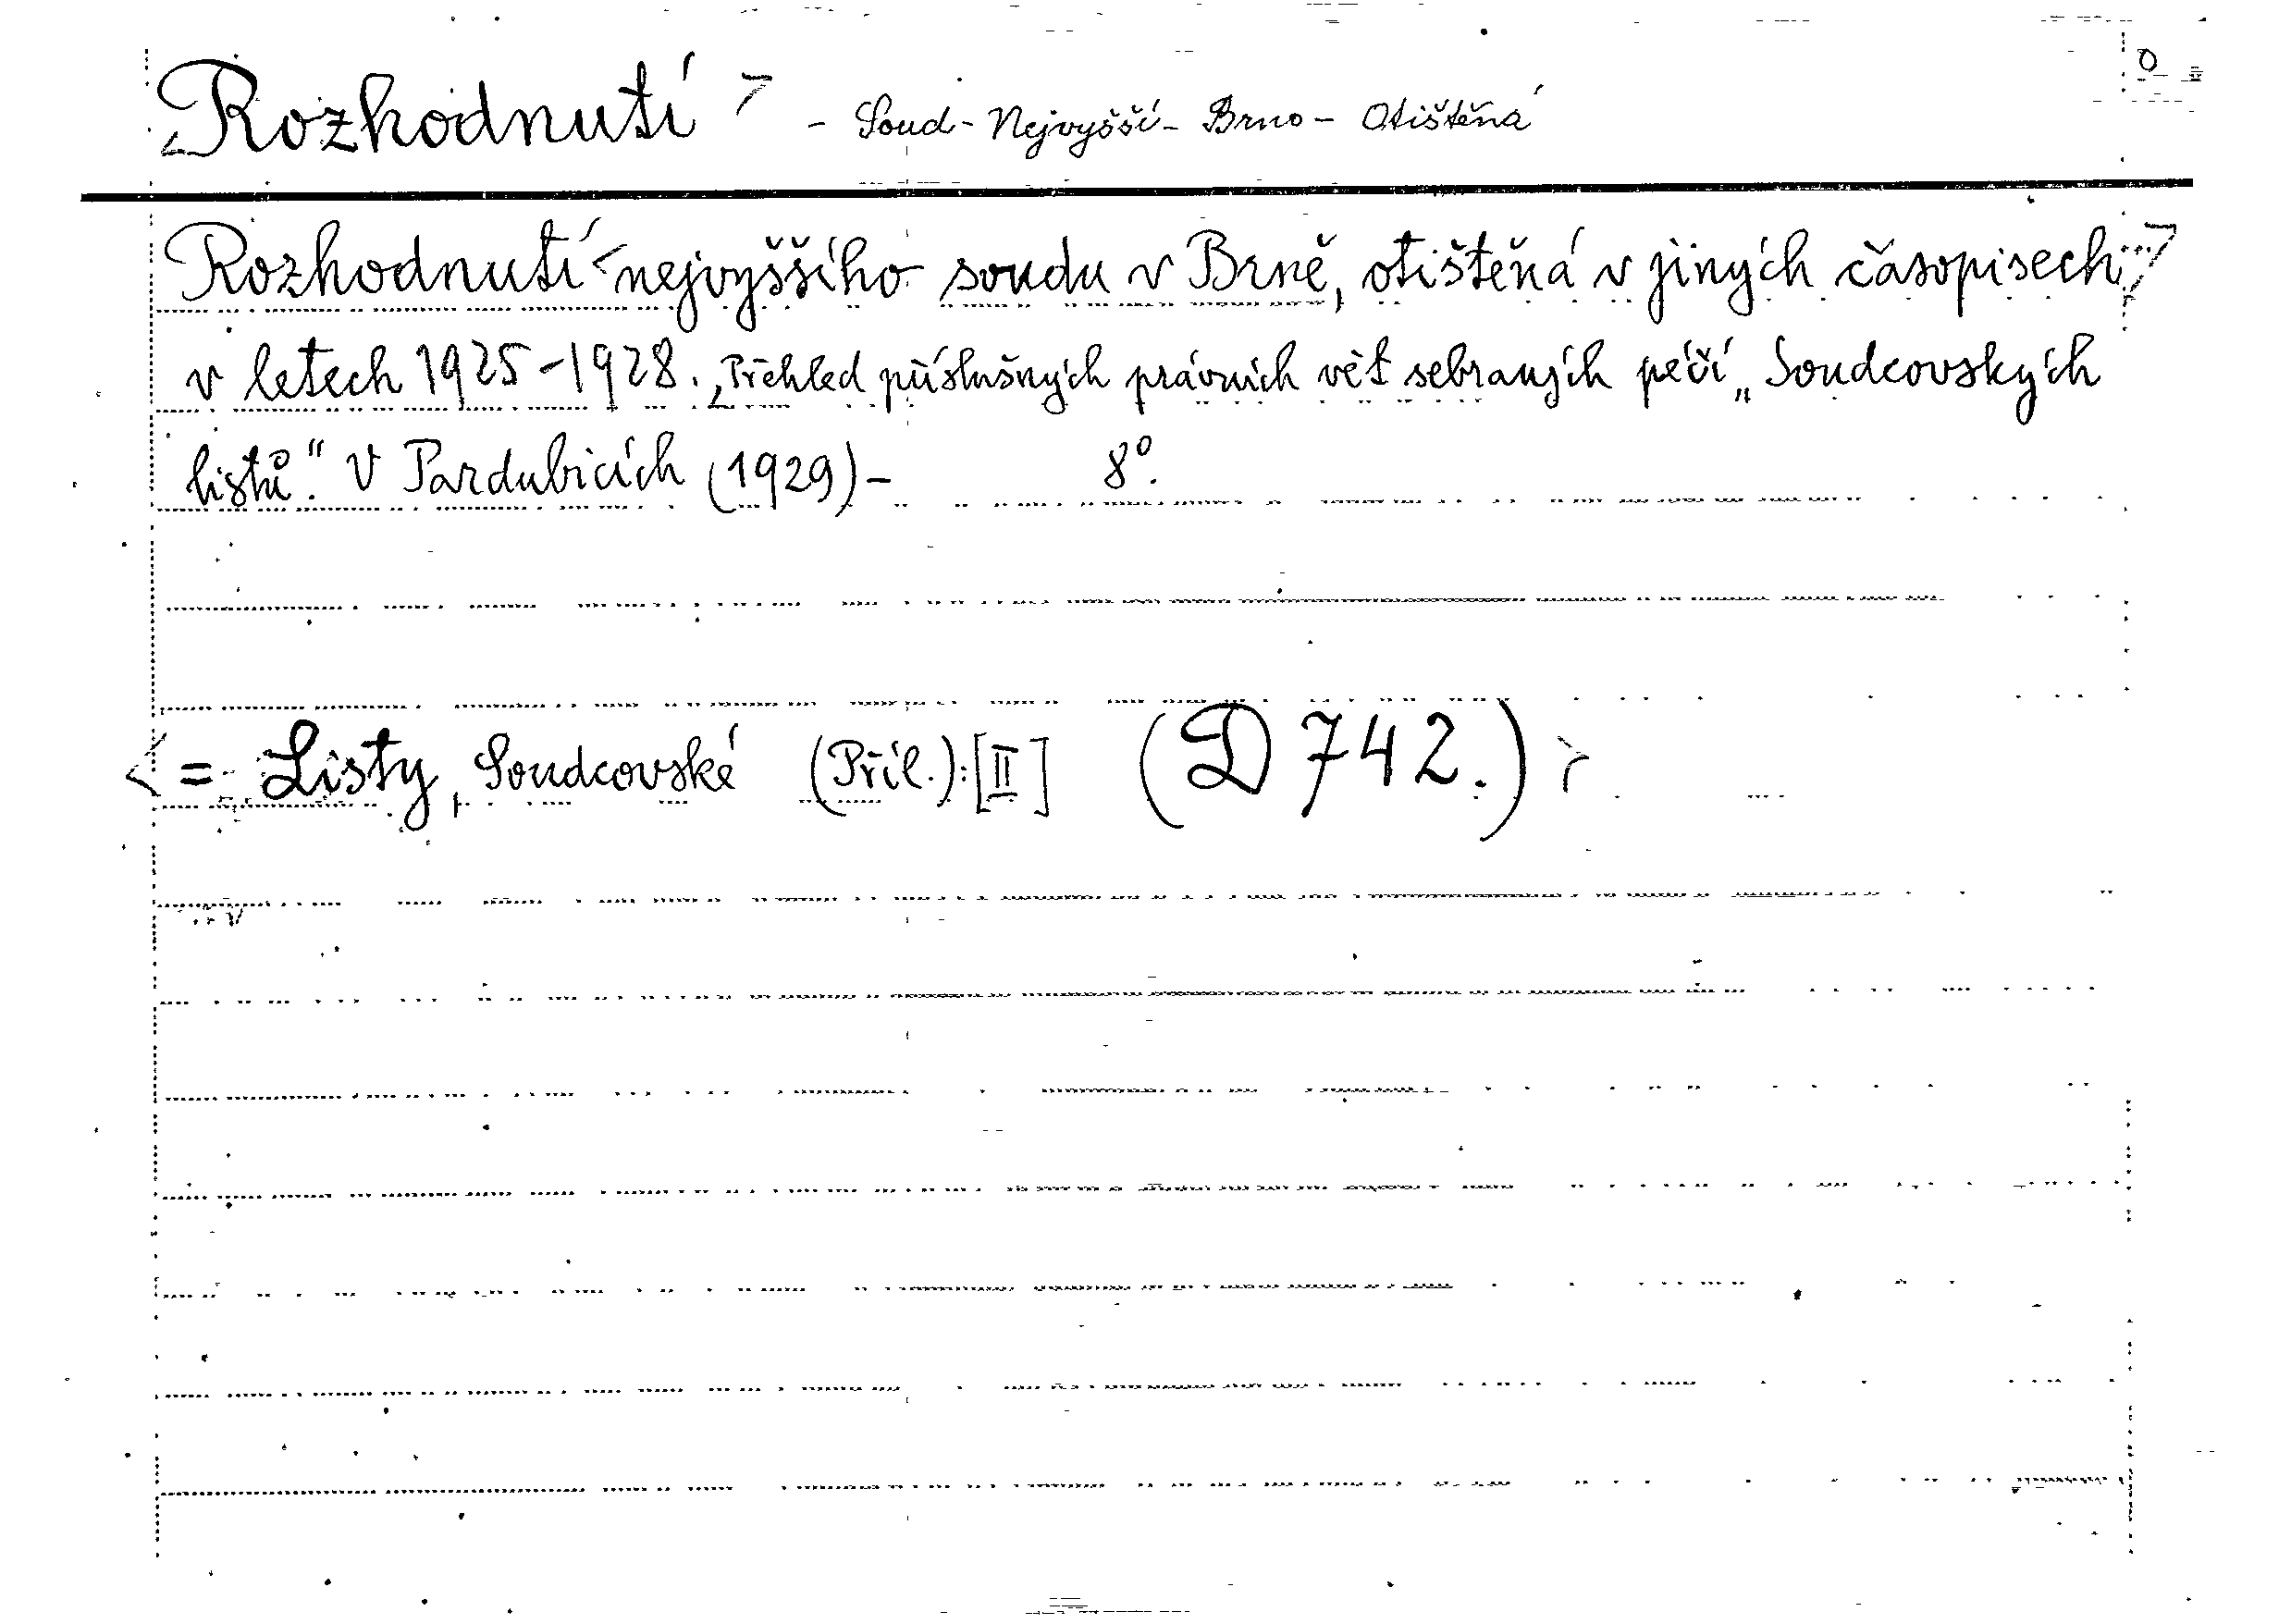 <Rozhodnutí> - Soud - Nejvyšší - Brno - Otištěná
Rozhodnutí <nejvyššího soudu v Brně, otištěná v jiných časopisech>
v letech 1925-1928. Přehled příslušných právních vět sebraných péčí „Soudcovských
listů.“ V Pardubicích (1929) - 8°.
<= Listy, Soudcovské (Příl.): [II] (D 742.)>